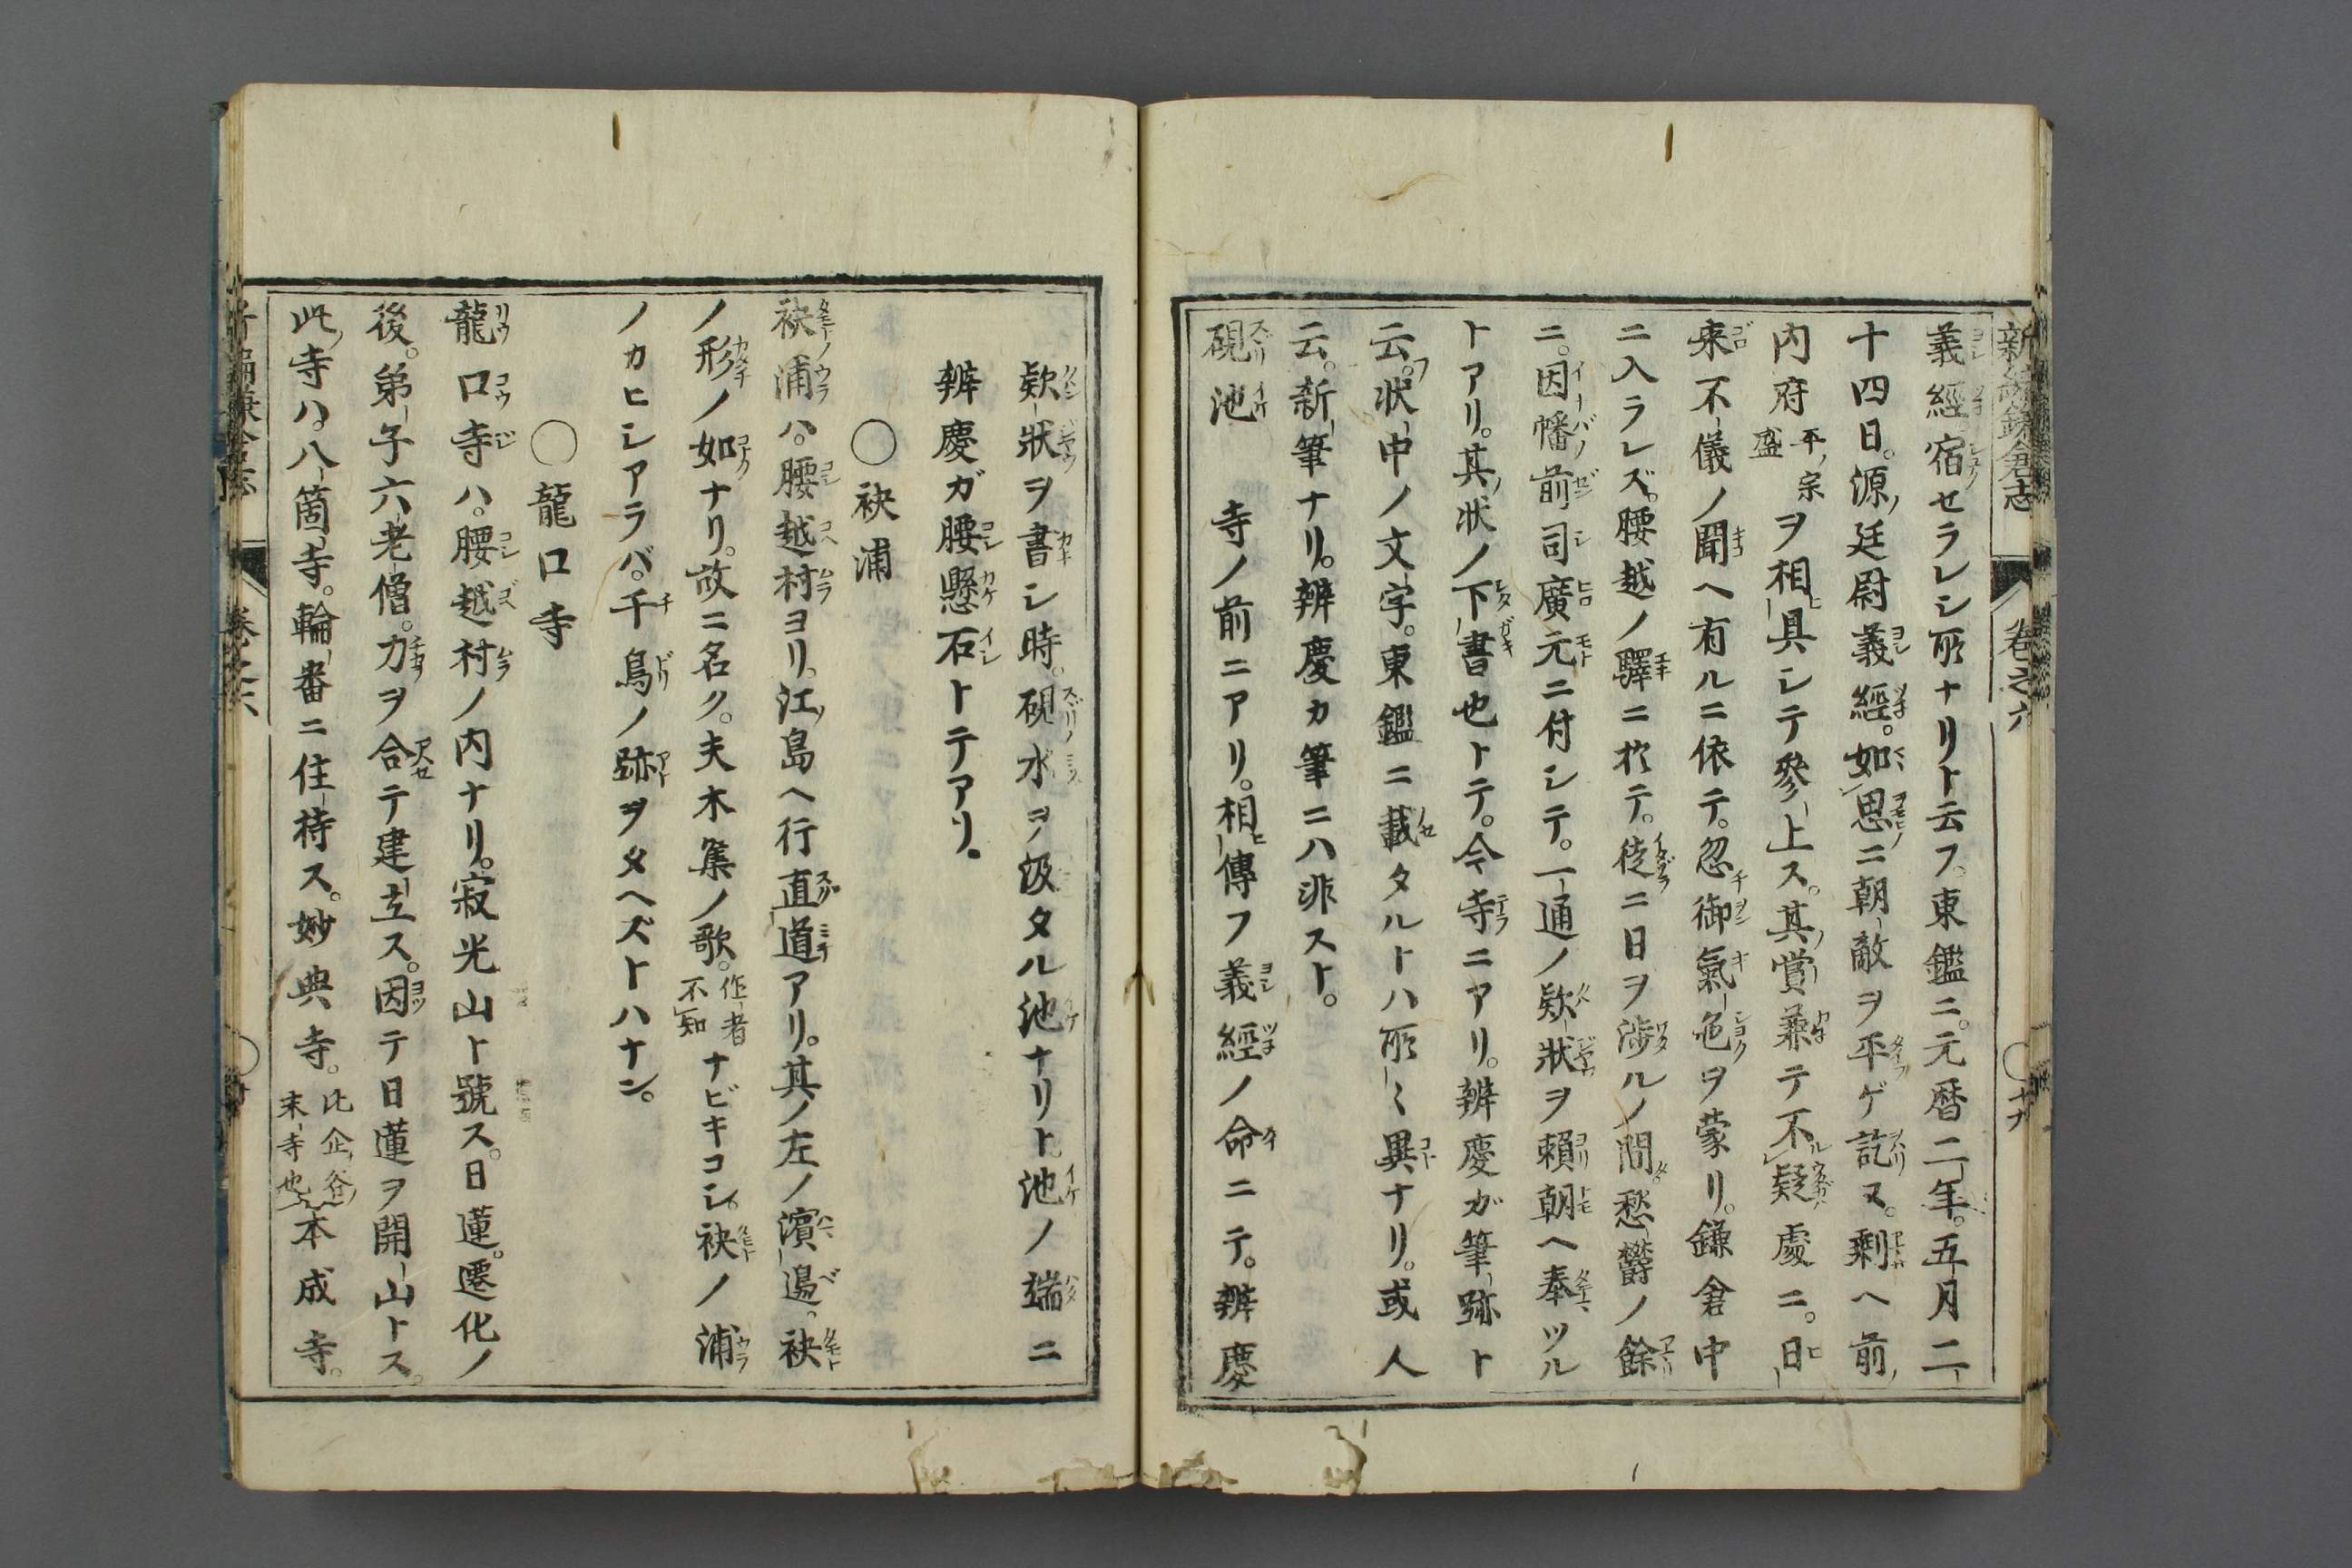 新編鎌倉志 卷之六 ○十九
義經宿セラレシ所ナリト云フ。東鑑ニ。元曆二年。五月二
十四日。源廷尉義經。如思ニ朝敵ヲ平ゲ訖ヌ。剩ヘ前
内府平ノ宗盛ヲ相具シテ參上ス。其賞兼テ不疑處ニ。日
来不儀ノ聞ヘ有ルニ依テ。忽御氣色ヲ蒙リ。鎌倉中
ニ入ラレズ。腰越ノ驛ニ於テ。徒ニ日ヲ渉ルノ間。愁欝ノ餘
ニ。因幡前司廣元ニ付シテ。一通ノ欵狀ヲ賴朝ヘ奉ツル
トアリ。其狀ノ下書也トテ。今寺ニアリ。辨慶ガ筆跡ト
云。狀中ノ文字。東鑑ニ載タルトハ所〻異ナリ。或人
云。新筆ナリ。辨慶カ筆ニハ非スト。
硯池 寺ノ前ニアリ。相傳フ義經ノ命ニテ。辨慶
欵狀ヲ書シ時。硯水ヲ汲タル池ナリト。池ノ端ニ
辨慶ガ腰懸石トテアリ。
○袂浦
袂浦ハ。腰越村ヨリ。江島ヘ行直道アリ。其ノ左ノ濱邊。袂
ノ形ノ如ナリ。故ニ名ク。夫木集ノ歌。作者不知ナビキコシ。袂ノ浦
ノカヒシアラバ。千鳥ノ跡ヲタヘズトハナン。
○龍口寺
龍口寺ハ。腰越村ノ内ナリ。寂光山ト號ス。日蓮。遷化ノ
後。弟子六老僧。力ヲ合テ建立ス。因テ日蓮ヲ開山トス。
此寺ハ。八箇寺。輪番ニ住持ス。妙典寺。比企谷ノ末寺也。本成寺。
新編鎌倉志 卷之六